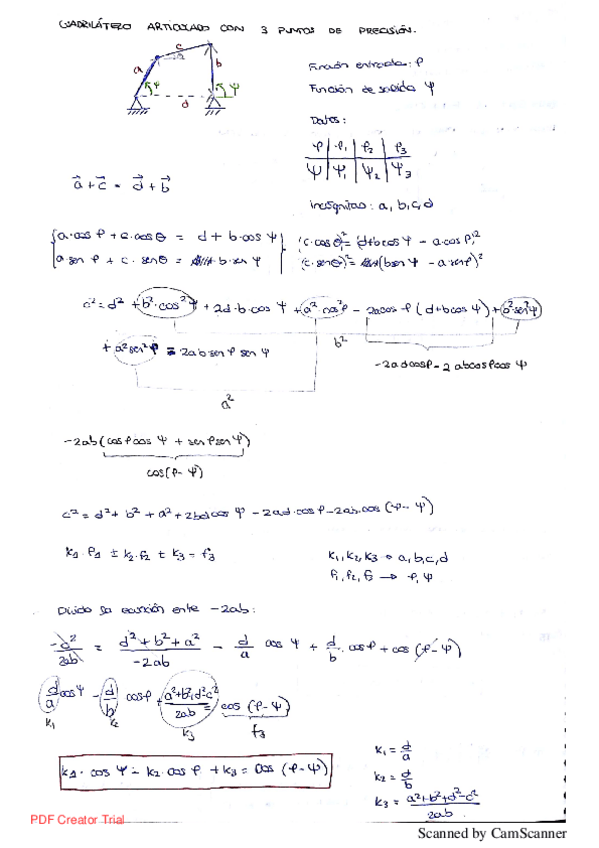 CUADRILÁTERO ARTICULADO CON 3 PUNTOS DE PRECISIÓN.
c
a
b
d
φ
ψ
Función entrada: φ
Función de salida ψ
Datos:
φ | φ₁ | φ₂ | φ₃
ψ | ψ₁ | ψ₂ | ψ₃
Incógnitas: a, b, c, d
a⃗ + c⃗ = d⃗ + b⃗
a·cos φ + c·cos θ = d + b·cos ψ
(c·cos θ)² = (d+b cos ψ − a·cos φ)²
a sen φ + c · sen θ = b·sen ψ
(c·sen θ)² = (b sen ψ − a sen φ)²
c² = d² + b²·cos² ψ + 2d·b·cos ψ + a²·cos² φ − 2a cos φ (d + b cos ψ) + b² sen² ψ
+ a² sen² φ − 2ab sen φ sen ψ
b²
−2ad cos φ − 2ab cos φ cos ψ
a²
−2ab (cos φ cos ψ + sen φ sen ψ)
cos(φ − ψ)
c² = d² + b² + a² + 2bd cos ψ − 2ad·cos φ − 2ab·cos (φ − ψ)
k₁·f₁ ± k₂·f₂ ± k₃ = f₃
k₁, k₂, k₃ → a, b, c, d
f₁, f₂, f₃ → φ, ψ
Divido la ecuación entre −2ab:
−c²/2ab = (d² + b² + a²)/−2ab − d/a cos ψ + d/b·cos φ + cos (φ − ψ)
d/a cos ψ − d/b cos φ + (a² + b² + d² − c²)/2ab = cos (φ − ψ)
k₁
k₂
k₃
f₃
k₁ · cos ψ − k₂ · cos φ + k₃ = cos (φ − ψ)
k₁ = d/a
k₂ = d/b
k₃ = (a² + b² + d² − c²)/2ab
PDF Creator Trial
Scanned by CamScanner